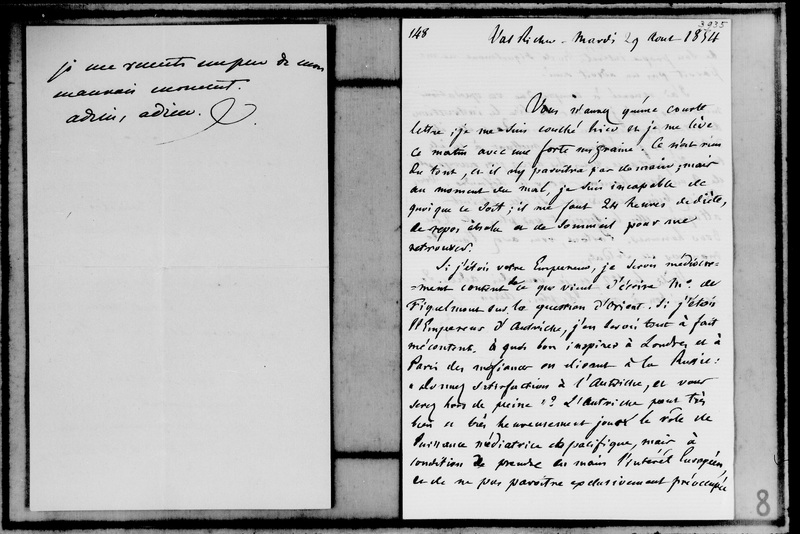 je me ressens un peu de mon
mauvais moment.
adieu, adieu.
3935
148 Val Richer - Mardi 29 Aout 1854
Vous n'aurez qu'une courte
lettre; je me suis couché hier et je me lève
ce matin avec une forte migraine. Ce n'est rien
du tout, et il n'y paroitra pas demain; mais
au moment du mal, je suis incapable de
quoi que ce soit; il me faut 24 heures de diète,
de repos absolu et de sommeil pour me
retrouver.
Si j'étois votre Empereur, je serois médiocre-
-ment content de ce que vient d'écrire Mr. de
Fiquelmont sur la question d'Orient. Si j'étois
l'Empereur d'Autriche, j'en serois tout à fait
mécontent. à quoi bon inspirer à Londres et à
Paris des méfiances en disant à la Russie:
"donnez satisfaction à l'Autriche, et vous
serez hors de peine"? L'Autriche peut très
bien et très heureusement jouer le rôle de
Puissance médiatrice et pacifique, mais à
condition de prendre en main l'intérêt Européen,
et de ne pas paroitre exclusivement préoccupée
8